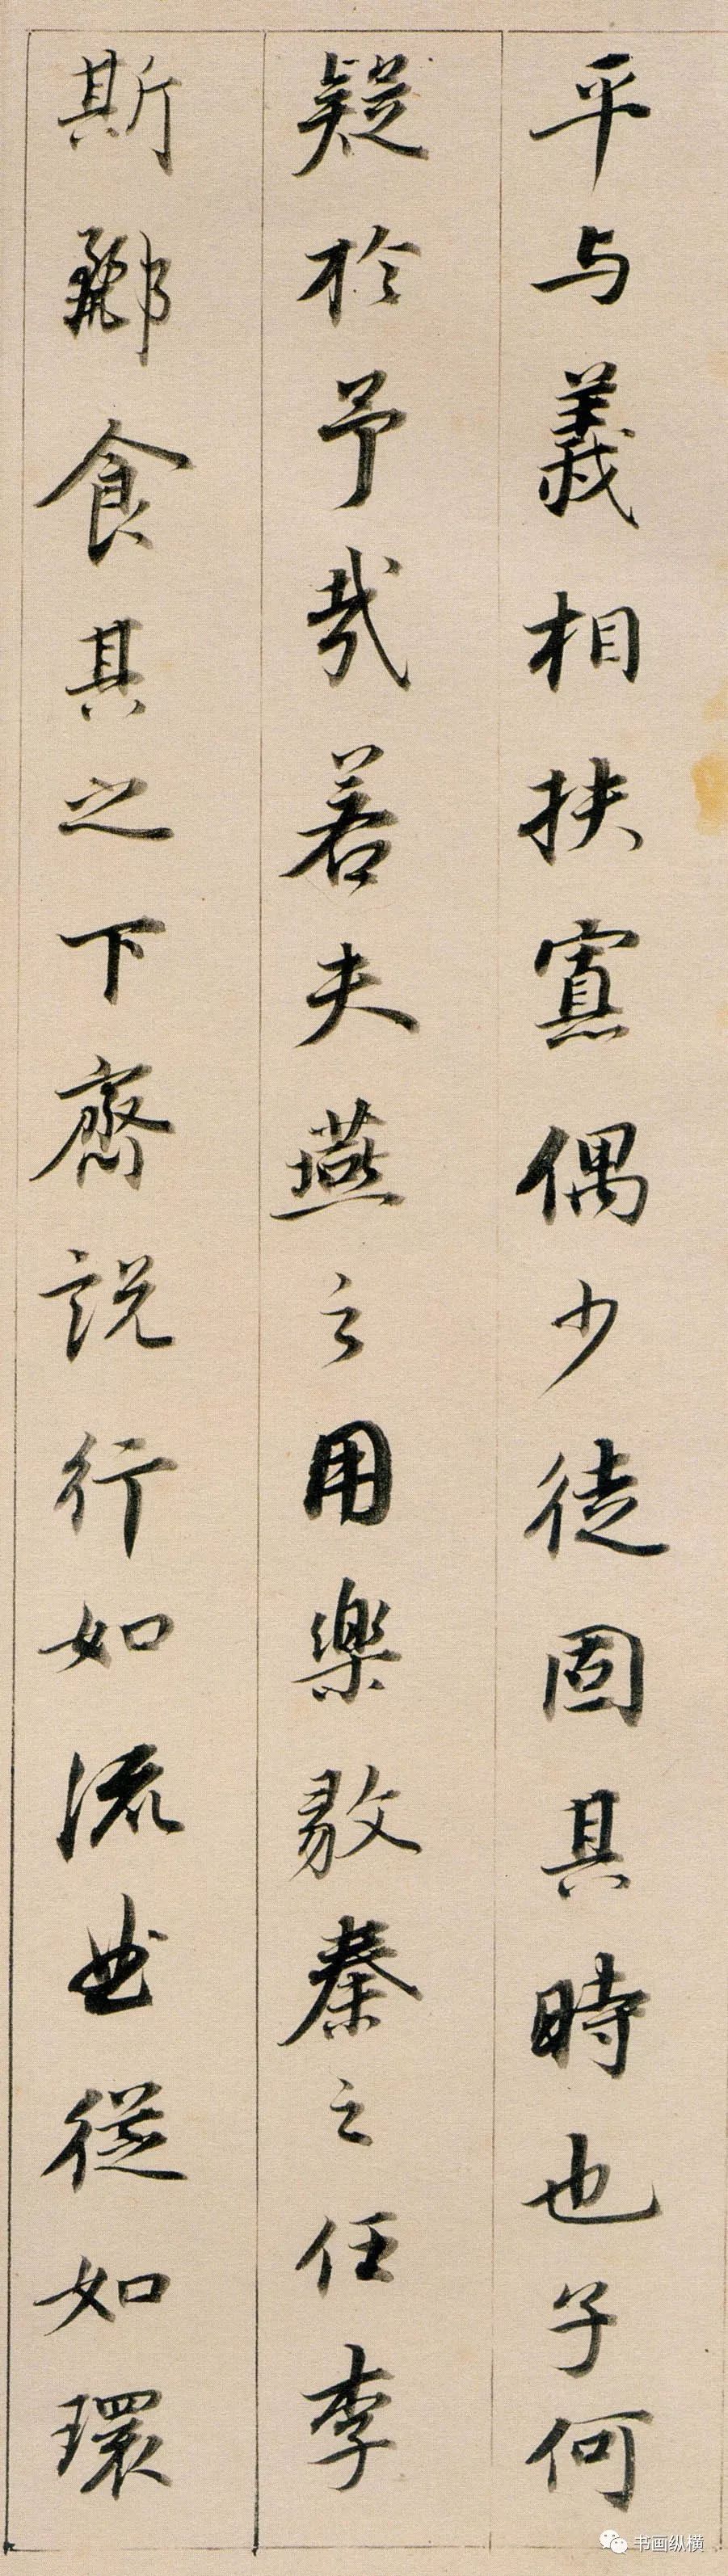 平与義相扶寡偶少徒固其時也子何
疑於予哉若夫燕之用樂毅秦之任李
斯酈食其之下齊說行如流曲從如環
书画纵横